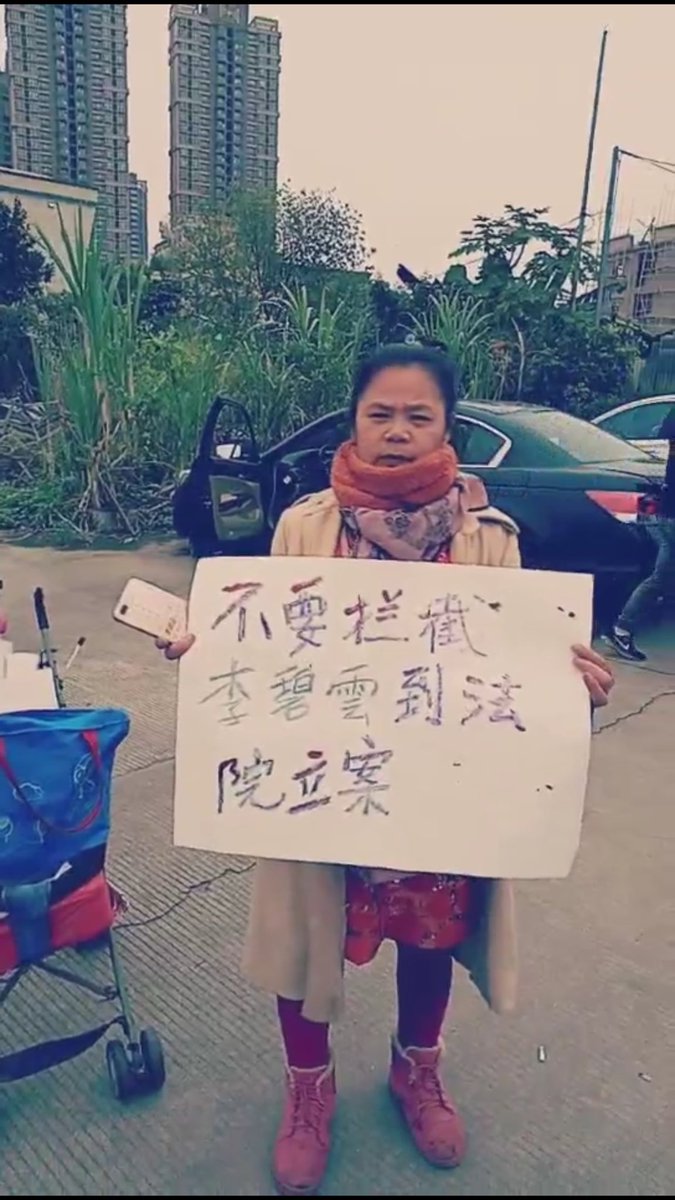 不要拦截
李碧雲到法
院立案